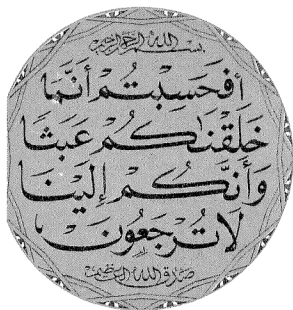 بسم الله الرحمن الرحيم
أفَحَسِبْتُمْ أَنَّمَا
خَلَقْنَاكُمْ عَبَثًا
وَأَنَّكُمْ إِلَيْنَا
لَا تُرْجَعُونَ
صدق الله العظيم